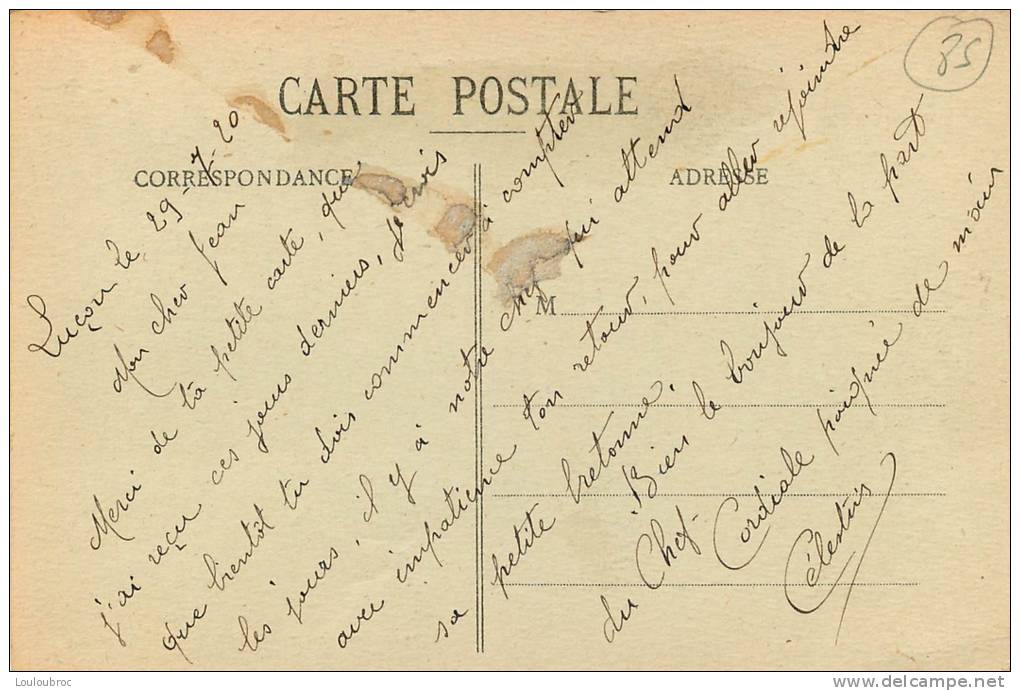 85
CARTE POSTALE
CORRESPONDANCE
ADRESSE
M
Luçon le 29-7-20
Mon cher Jean
Merci de ta petite carte, que
j'ai reçu ces jours derniers, je crois
que bientôt tu dois commencer à compter
les jours, il y à notre chef qui attend
avec impatience ton retour, pour aller rejoindre
sa petite bretonne.
Bien le bonjour de la part
du Chef
Cordiale poignée de main
Célestin
Louloubroc
delcampe.net